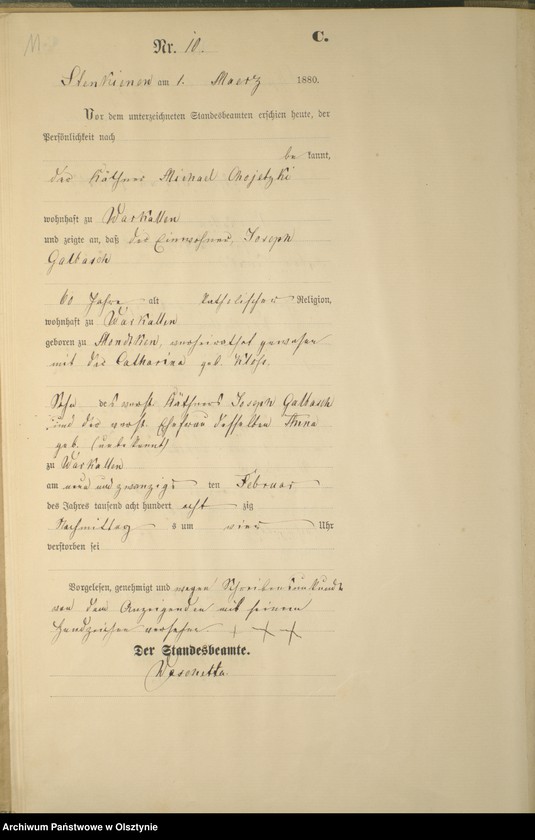 C.
Nr. 10.
Stenkienen am 1. Maerz 1880.
Vor dem unterzeichneten Standesbeamten erschien heute, der
Persönlichkeit nach
be kannt,
der Käthner Michael Chojetzki
wohnhaft zu Warkallen
und zeigte an, daß der Einwohner, Joseph
Galbasch
60 Jahre alt katholischer Religion,
wohnhaft zu Warkallen
geboren zu Mondtken, verheirathet gewesen
mit der Catharina geb. Klose,
Sohn des verst. Käthners Joseph Galbasch
und der verst. Ehefrau desselben Anna
geb. (unbekannt)
zu Warkallen
am neun und zwanzigs ten Februar
des Jahres tausend acht hundert acht zig
Nachmittag s um vier Uhr
verstorben sei
Vorgelesen, genehmigt und wegen Schreibensunkunde
von dem Anzeigenden mit seinem
Handzeichen versehen + + +
Der Standesbeamte.
Archiwum Państwowe w Olsztynie